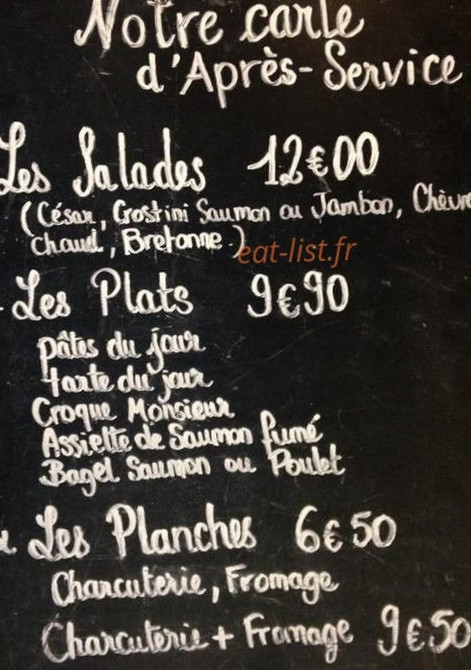 Notre carte
d'Après-Service
Les Salades 12€00
(César, Crostini Saumon ou Jambon, Chèvre
chaud, Bretonne.)
eat-list.fr
- Les Plats 9€90
pâtes du jour
tarte du jour
Croque Monsieur
Assiette de Saumon fumé
Bagel Saumon ou Poulet
Les Planches 6€50
Charcuterie, Fromage
Charcuterie + Fromage 9€50